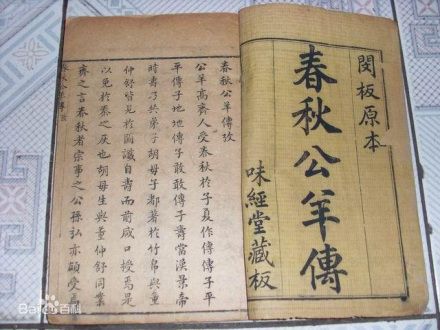 閔板原本
春秋公羊傳
味經堂藏板
春秋公羊傳攷
公羊高齊人受春秋於子夏作傳傳子平
平傳子地地傳子敢敢傳子壽當漢景帝
時壽乃共弟子胡母子都著於竹帛與董
仲舒皆見於圖讖自壽而前咸口授焉是
以免於秦之灰也胡母生與董仲舒同業
齊之言春秋者宗事之公孫弘亦頗受焉
Bai百科